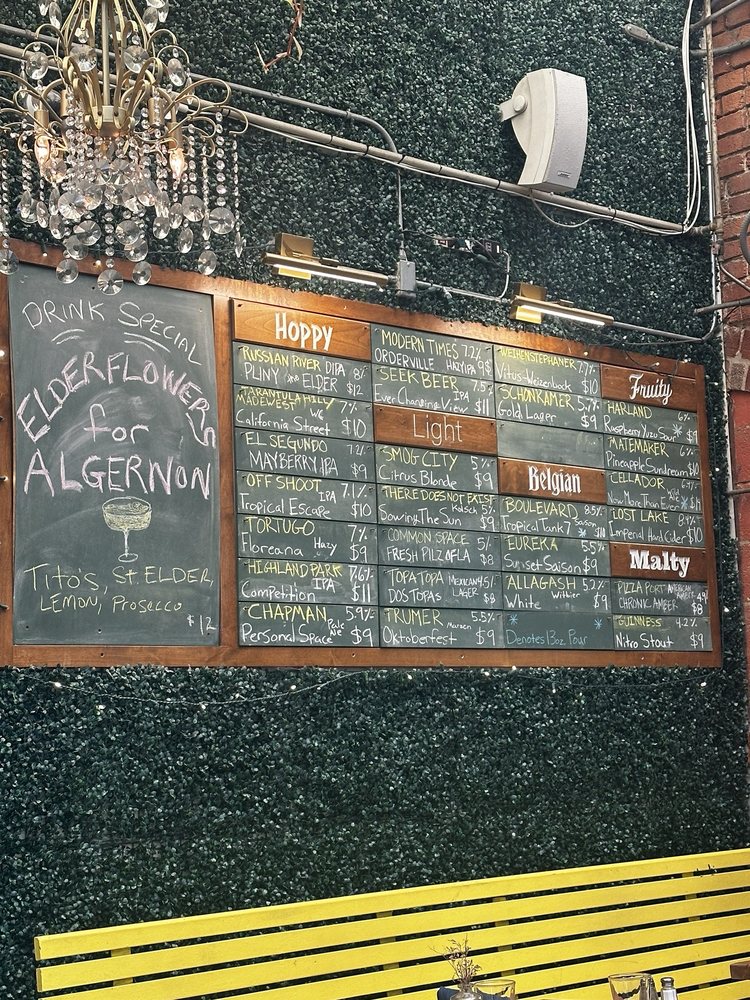 DRINK SPECIAL
ELDERFLOWERS
for
ALGERNON
Tito's, St. ELDER,
LEMON, Prosecco
$12
Hoppy
RUSSIAN RIVER DIPA 8%
PLINY the ELDER $12
TARANTULA HILL 7%
MADEWEST WC
California Street $10
EL SEGUNDO 7.2%
MAYBERRY IPA $9
OFFSHOOT IPA 7.1%
Tropical Escape $10
TORTUGO 7%
Floreana Hazy $9
HIGHLAND PARK 7.6%
Competition IPA $11
CHAPMAN 5.9%
Personal Space Pale Ale $9
MODERN TIMES 7.2%
ORDERVILLE HAZY IPA 9$
SEEK BEER IPA 7.5%
Ever Changing View $11
Light
SMOG CITY 5%
Citrus Blonde $9
THERE DOES NOT EXIST
Sowing The Sun Kolsch 5% $9
COMMON SPACE 5%
FRESH PILZ OF LA $8
TOPA TOPA MEXICAN 4.5%
DOS TOPAS LAGER $8
TRUMER 5.5%
Oktoberfest Marzen $9
WEIHENSTEPHANER 7.7%
Vitus-Weizenbock $10
SCHONRAMER 5.7%
Gold Lager $9
Belgian
BOULEVARD 8.5%
Tropical Tank 7 Saison $10
EUREKA 5.5%
Sunset Saison $9
ALLAGASH 5.2%
White Witbier $9
* *
Denotes 13oz. Pour
Fruity
HARLAND 6%
Raspberry Yuzu Sour * $9
MATEMAKER 6%
Pineapple Sundream $10
CELLADOR
Now More Than Ever Wild *
LOST LAKE 8.4%
Imperial Hard Cider $10
Malty
PIZZA PORT AMERICAN
CHRONIC AMBER
GUINNESS 4.2%
Nitro Stout $9